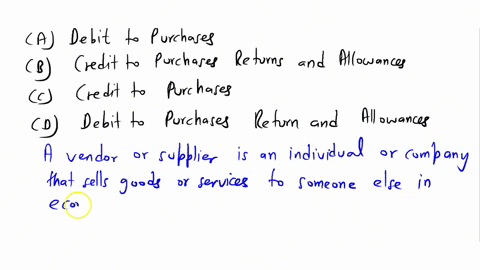 (A) Debit to Purchases
(B) Credit to Purchases Returns and Allowances
(C) Credit to Purchases
(D) Debit to Purchases Return and Allowances
A vendor or supplier is an individual or company
that sells goods or services to someone else in
eco